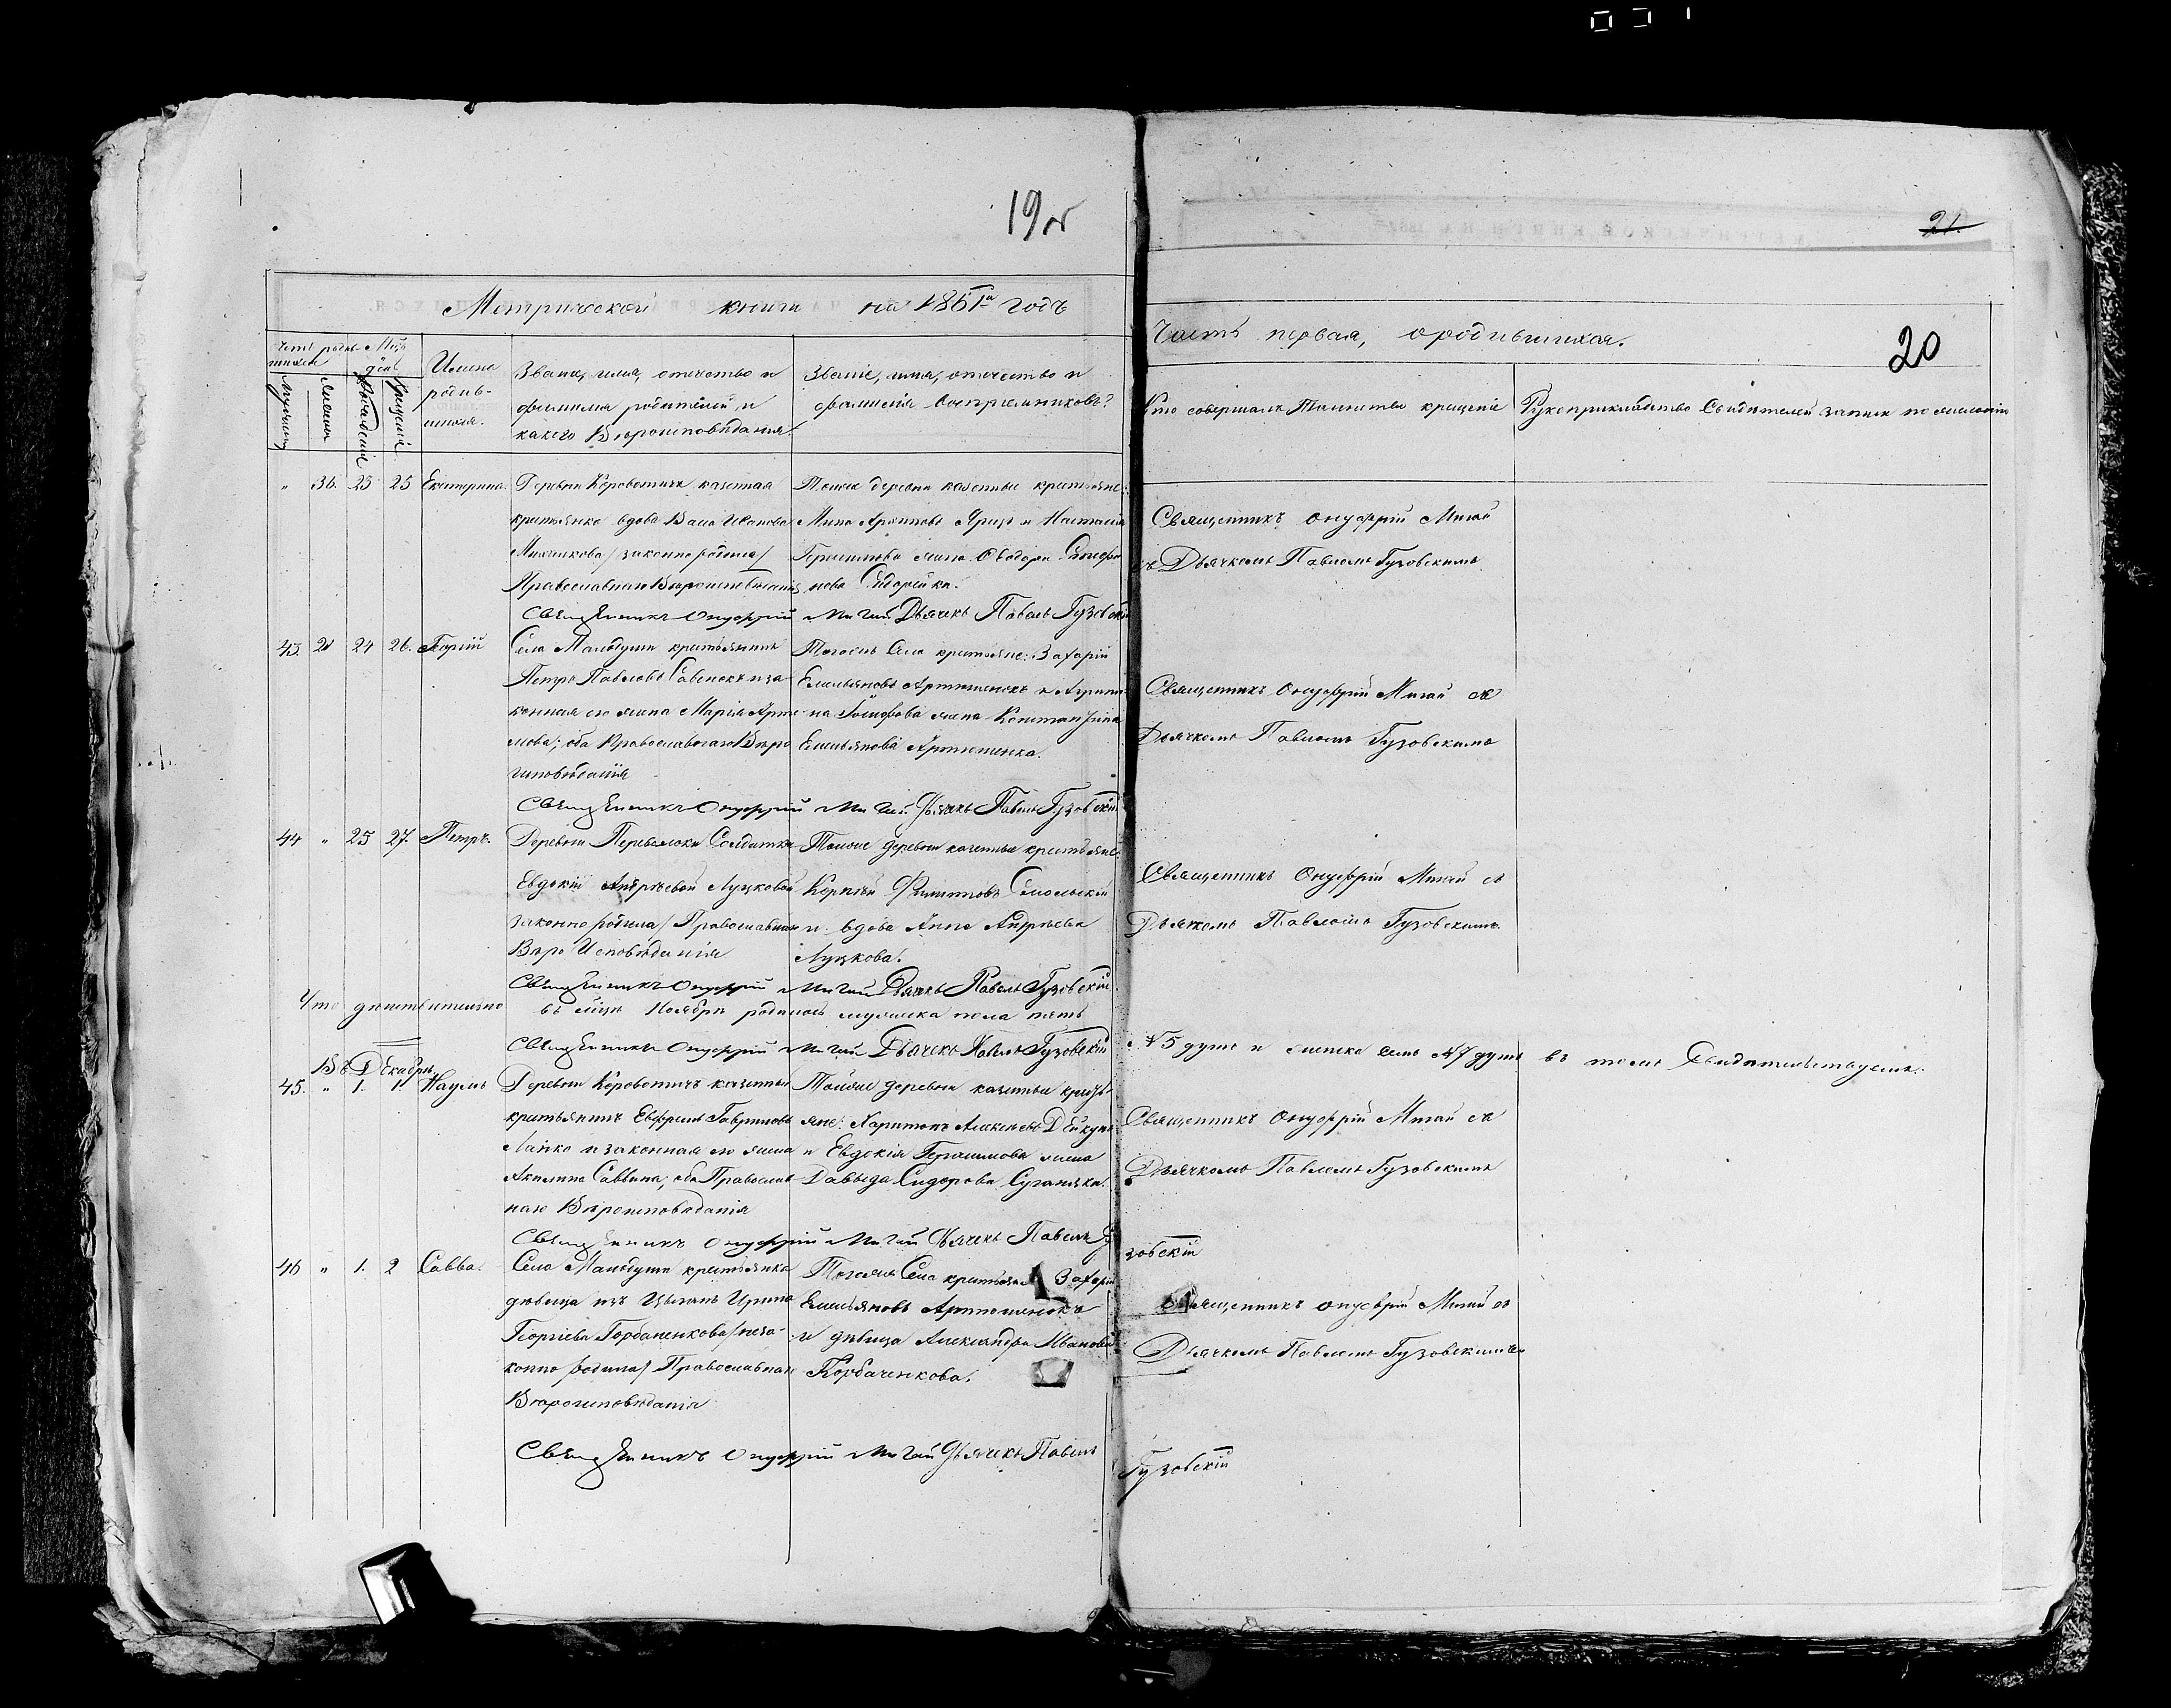 19 об
21.
20
Метрической книги на 1861й годъ
Часть первая, о родившихся.
Счетъ родив- Мѣсць
шихся день
Мужеска
Женска
Рожденія
Крещенія
Имена
родив-
шихся.
Званіе, имя, отчество и
фамилія родителей и
какого Вѣроисповѣданія.
Званіе, имя, отчество и
фамилія Воспріемниковъ?
Кто совершалъ Таинство крещенія
Рукоприкладство Свидѣтелей записи по желанію
" 36. 23 25 Екатерина.
Деревни казенная
крестьянка вдова Иванова
/законно родила/
Православнаго Вѣроисповѣданія
Тойже деревни казенные крестьяне:
и Настасія
жена Сидорейка.
Священникъ Онуфрій Мигай
съ Дьячкомъ Павломъ Гузовскимъ
Священникъ Онуфрій Мигай Дьячекъ Павелъ Гузовскій
43. " 24 26. Георгій
Села крестьянинъ
Петръ Павловъ и за-
конная его жена Марія Арте-
мова; оба Православнаго Вѣро-
исповѣданія
Тогожъ Села крестьяне: Захарій
Емельяновъ Артюшенокъ и
жена Константина
Емельянова Артюшенка.
Священникъ Онуфрій Мигай съ
Дьячкомъ Павломъ Гузовскимъ
Священникъ Онуфрій Мигай Дьячекъ Павелъ Гузовскій
44 " 25 27. Петръ.
Деревни Солдатка
Евдокія Андреевой Луцковой
законно родила/ Православнаго
Вѣро Исповѣданія
Тойже деревни казенные крестьяне
Корнѣй Филиповъ
и вдова Анна Андреева
Луцкова.
Священникъ Онуфрій Мигай съ
Дьячкомъ Павломъ Гузовскимъ
Священникъ Онуфрій Мигай Дьячекъ Павелъ Гузовскій
Что дѣйствительно въ мѣсцѣ Ноябрѣ родилось мужеска пола пять
№5 душъ и женска семь №7 душъ въ томъ Свидѣтельствуемъ.
Священникъ Онуфрій Мигай Дьячекъ Павелъ Гузовскій
Въ Декабрѣ
45. " 1. 1. Наумъ
Деревни казенный
крестьянинъ
и законная его жена
Акилина Саввина, оба Православ-
наго Вѣроисповѣданія
Тойже деревни казенные кресть-
яне: Харитонъ Алексѣевъ
и Евдокія Герасимова жена
Давыда Сидорова
Священникъ Онуфрій Мигай съ
Дьячкомъ Павломъ Гузовскимъ
Священникъ Онуфрій Мигай Дьячекъ Павелъ Гу
зовскій
46 " 1. 2 Савва.
Села крестьянка
дѣвица изъ Цыганъ Ирина
Георгіева Горбаченкова /неза-
конно родила/ Православнаго
Вѣроисповѣданія
Тогожъ Села крестьяне Захарій
Емельяновъ Артюшенокъ
и дѣвица Александра Иванова
Горбаченкова.
Священникъ Онуфрій Мигай съ
Дьячкомъ Павломъ Гузовскимъ
Священникъ Онуфрій Мигай Дьячекъ Павелъ
Гузовскій